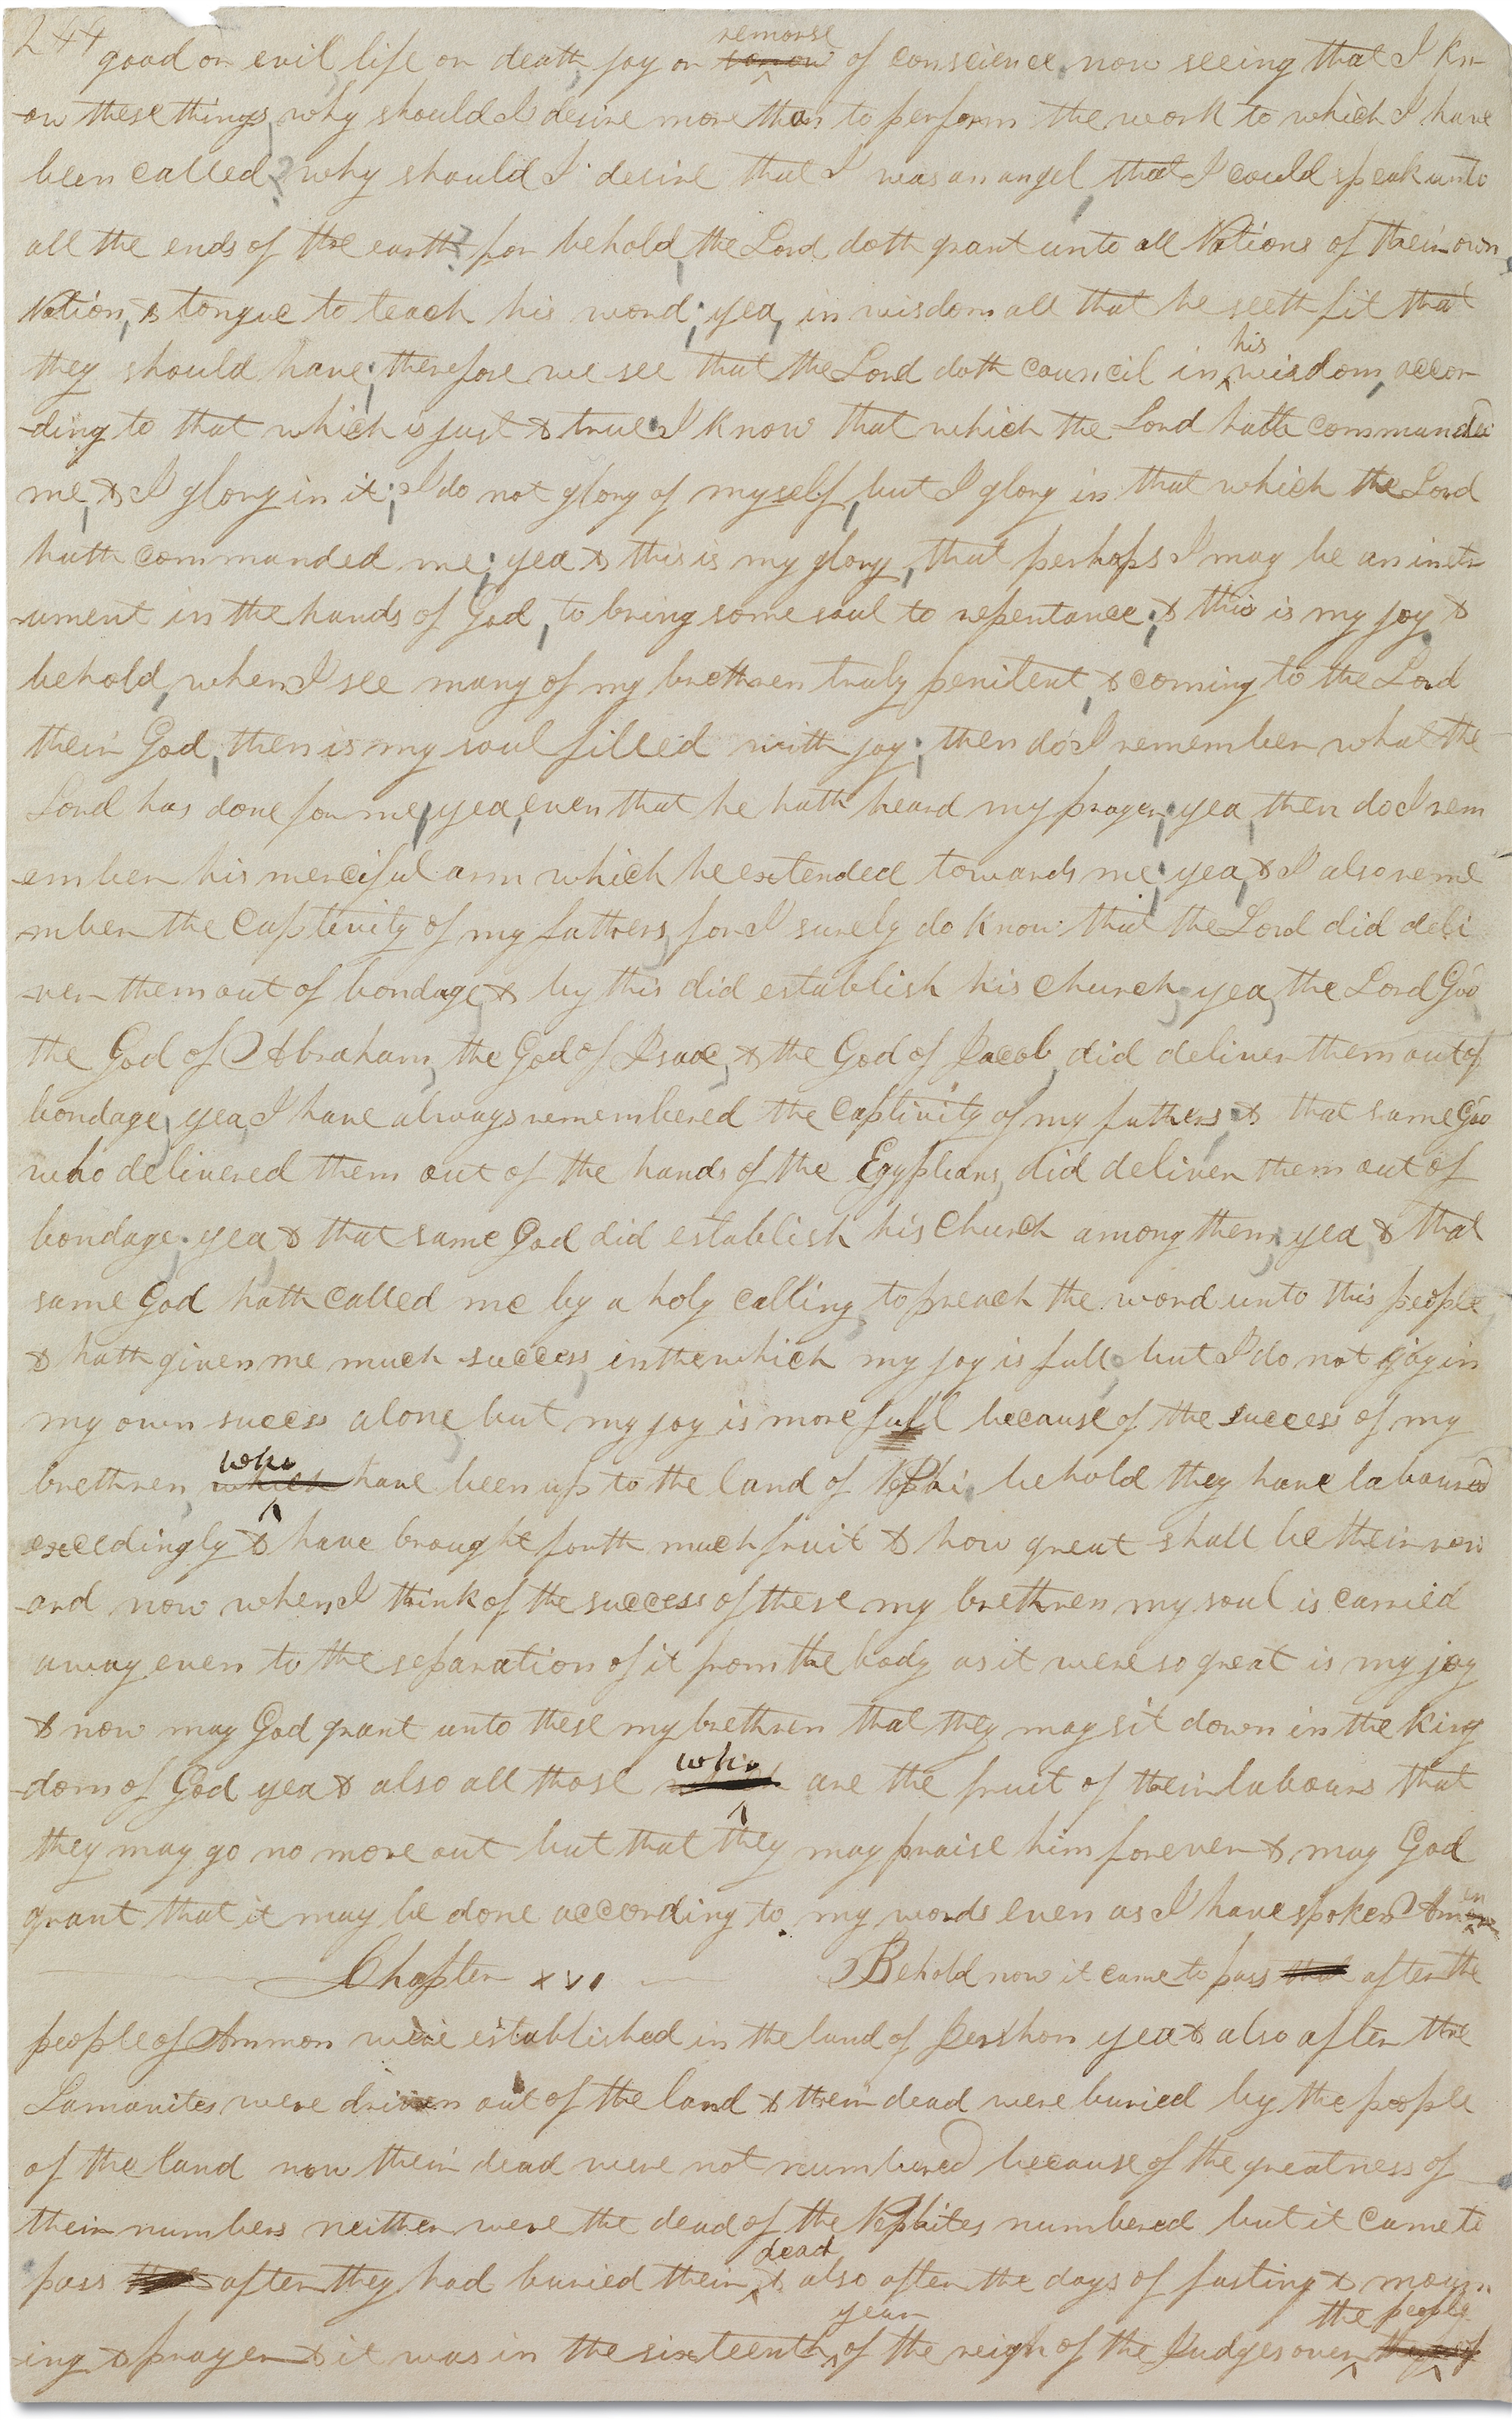 244 good or evil life or death, joy or sorrow remorse of conscience. now seeing that I kn-
-ow these things, why should I desire more than to perform the work to which I have
been called? why should I desire that I was an angel, that I could speak unto
all the ends of the earth? for behold, the Lord doth grant unto all Nations of their own
Nation, & tongue to teach his word; yea, in wisdom all that he seeth fit that
they should have; therefore we see that the Lord doth council in his wisdom, accor-
-ding to that which is just & true. I know that which the Lord hath commanded
me, & I glory in it; I do not glory of myself, but I glory in that which the Lord
hath commanded me; yea & this is my glory, that perhaps I may be an instr-
ument in the hands of God, to bring some soul to repentance; & this is my joy. &
behold, when I see many of my brethren truly penitent, & coming to the Lord
their God, then is my soul filled with joy; then do I remember what the
Lord has done for me, yea, even that he hath heard my prayer; yea, then do I rem
-ember his merciful arm which he extended towards me; yea, & I also reme
mber the captivity of my fathers, for I surely do know that the Lord did deli
-ver them out of bondage, & by this did establish his church; yea, the Lord God
the God of Abraham, the God of Isaac, & the God of Jacob, did deliver them out of
bondage, yea, I have always remembered the captivity of my fathers; & that same God
who delivered them out of the hands of the Egyptians, did deliver them out of
bondage; yea, & that same God did establish his church among them; yea, & that
same God hath called me by a holy calling, to preach the word unto this people,
& hath given me much success, in the which my joy is full; but I do not joy in
my own success alone, but my joy is more full because of the success of my
brethren, which who have been up to the land of Nephi; behold they have laboured
exceedingly & have brought forth much fruit & how great shall be their rew
-ard now when I think of the success of these my brethren my soul is carried
away even to the separation of it from the body as it were so great is my joy
& now may God grant unto these my brethren that they may sit down in the King
-dom of God yea & also all those who are the fruit of their labours that
they may go no more out but that they may praise him forever & may God
grant that it may be done according to my words even as I have spoken Amen
Chapter XVI Behold now it came to pass that after the
people of Ammon were established in the land of Jershon yea & also after the
Lamanites were driven out of the land & their dead were buried by the people
of the land now their dead were not numbered because of the greatness of
their numbers neither were the dead of the Nephites numbered but it came to
pass after they had buried their dead & also after the days of fasting & mourn
-ing & prayer & it was in the sixteenth year of the reign of the Judges over the people